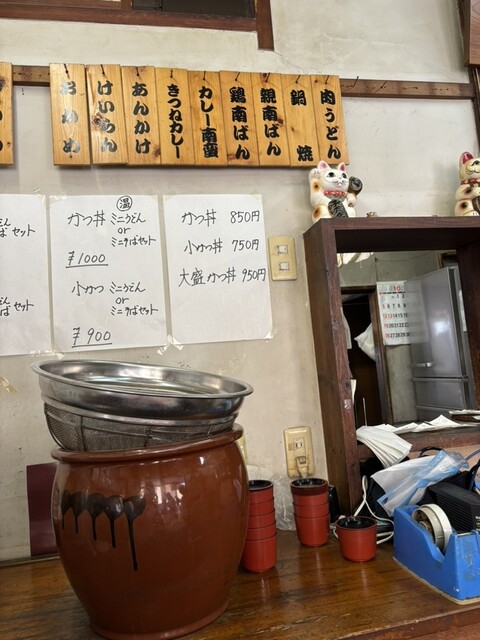 肉うどん
鍋焼
親南ばん
鶏南ばん
カレー南蛮
きつねカレー
あんかけ
けいらん
おかめ
セット
セット
温
かつ丼 ミニうどん
or
ミニそばセット
¥1000
小かつ ミニうどん
or
ミニそばセット
¥900
かつ丼 850円
小かつ丼 750円
大盛かつ丼 950円
10